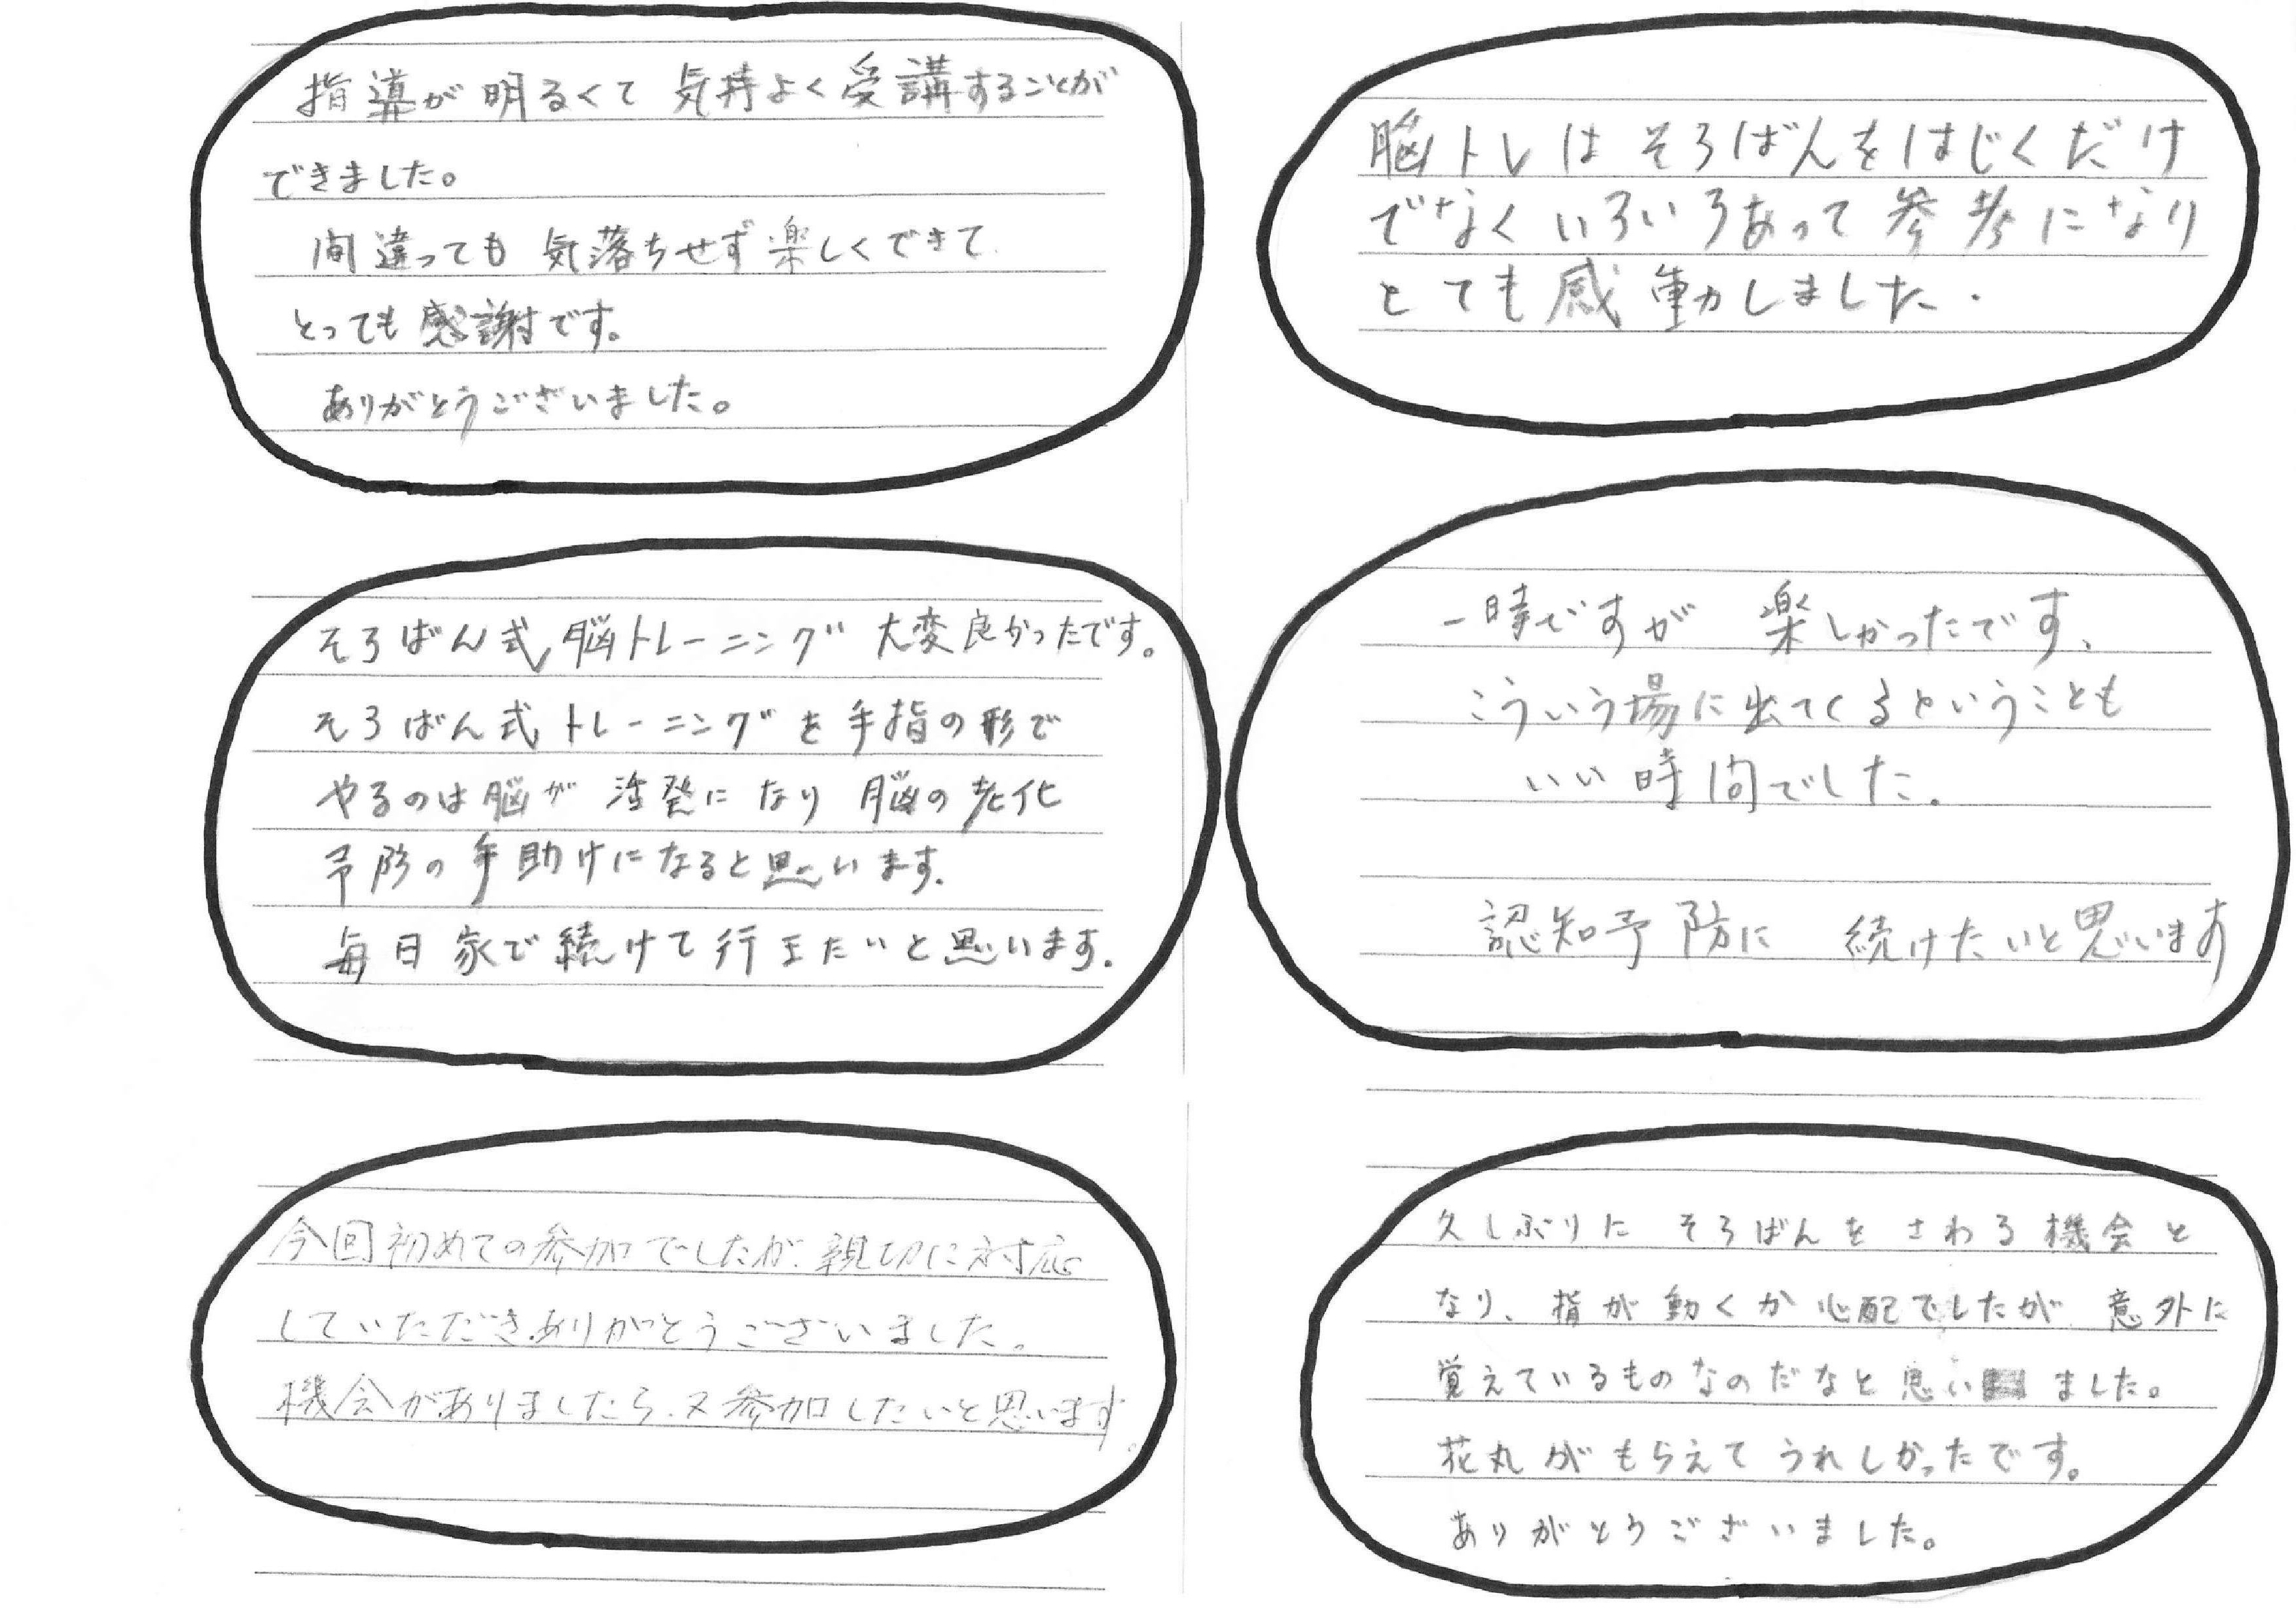 指導が明るくて 気持よく受講することが
できました。
間違っても 気落ちせず楽しくできて
とっても感謝です。
ありがとうございました。
脳トレはそろばんをはじくだけ
でなくいろいろあって参考になり
とても感動しました.
そろばん式脳トレーニング 大変良かったです。
そろばん式トレーニングを手指の形で
やるのは脳が 活発になり 脳の老化
予防の手助けになると思います.
毎日家で続けて行きたいと思います.
一時ですが 楽しかったです、
こういう場に出てくるということも
いい時間でした.
認知予防に 続けたいと思います
今回初めての参加でしたが、親切に対応
していただきありがとうございました。
機会がありましたら、又参加したいと思います。
久しぶりに そろばんを さわる機会と
なり、指が動くか心配でしたが 意外に
覚えているものなのだなと思いました。
花丸がもらえてうれしかったです。
ありがとうございました。